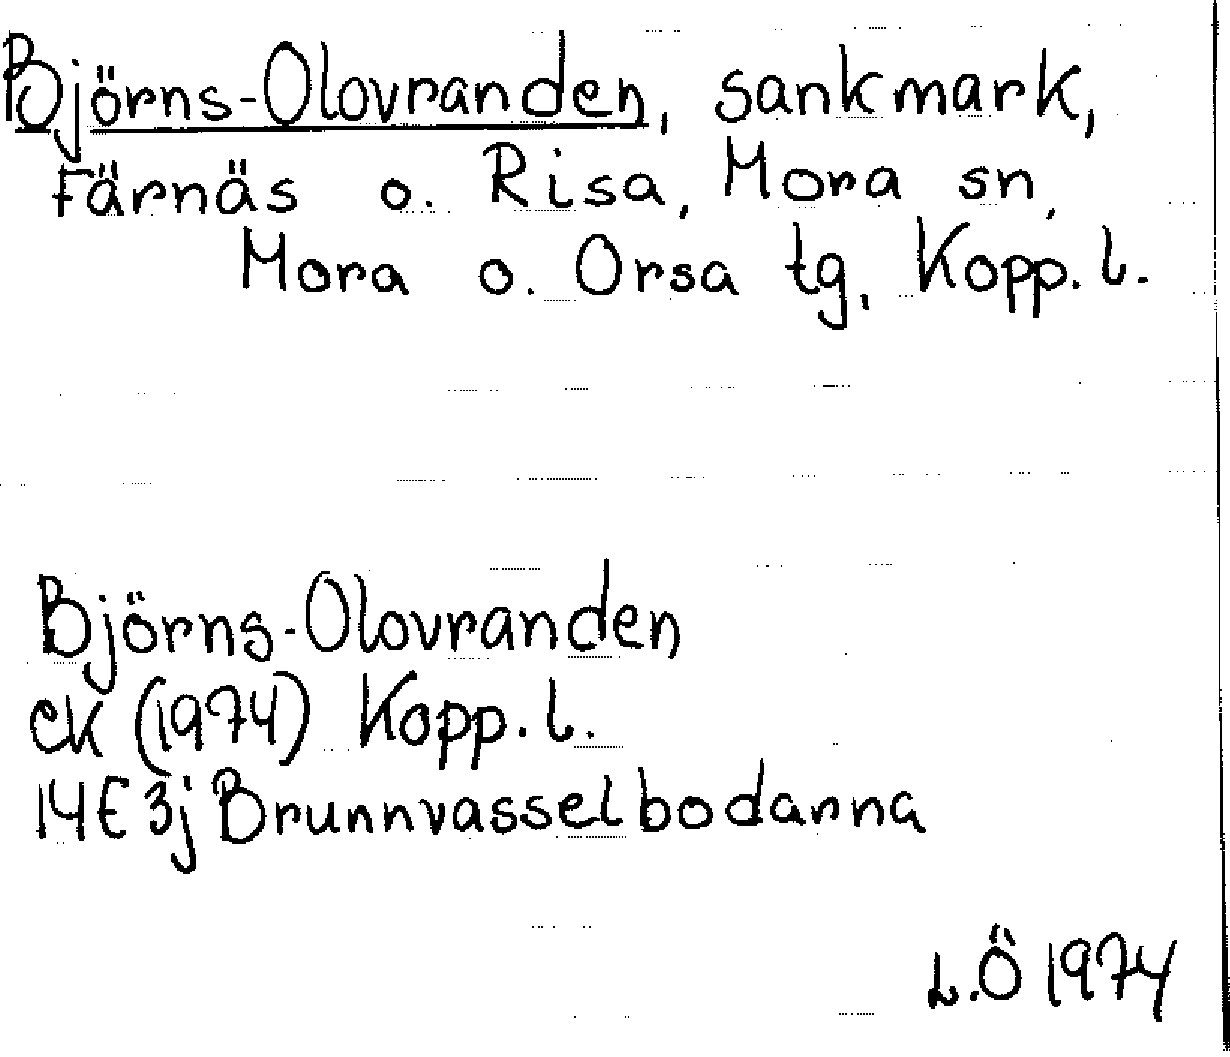 Björns-Olovranden, sankmark,
Färnäs o. Risa, Mora sn,
Mora o. Orsa tg, Kopp. l.
Björns-Olovranden
ek (1974) Kopp. l.
14E 3j Brunnvasselbodarna
L.Ö 1974